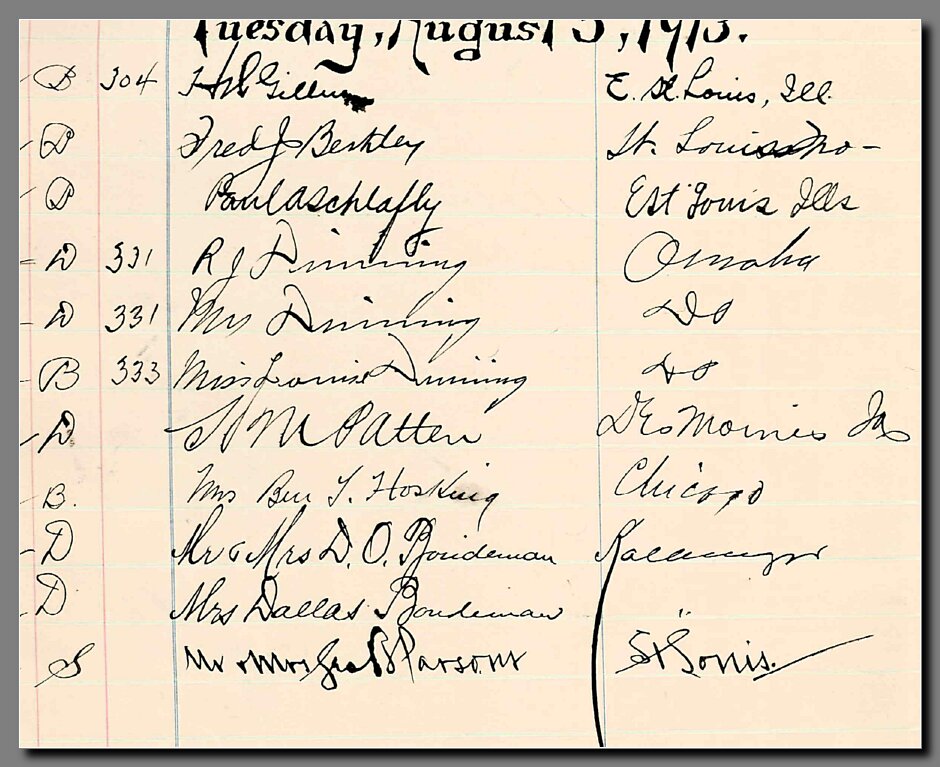 Tuesday, August 5, 1913.
B 304 H W Gillum E. St. Louis, Ill.
D Fred J Berkley St. Louis Mo -
D Paul A Schlafly E St Louis Ills
D 331 R J Dinning Omaha
D 331 Mrs Dinning Do
B 333 Miss Louise Dinning Do
D H M Patten Des Moines Ia
B. Mrs Ben T. Hosking Chicago
D Mr & Mrs D. O. Boudeman Kalamazoo
D Mrs Dallas Boudeman "
S Mr & Mrs Geo B Parsons St Louis.